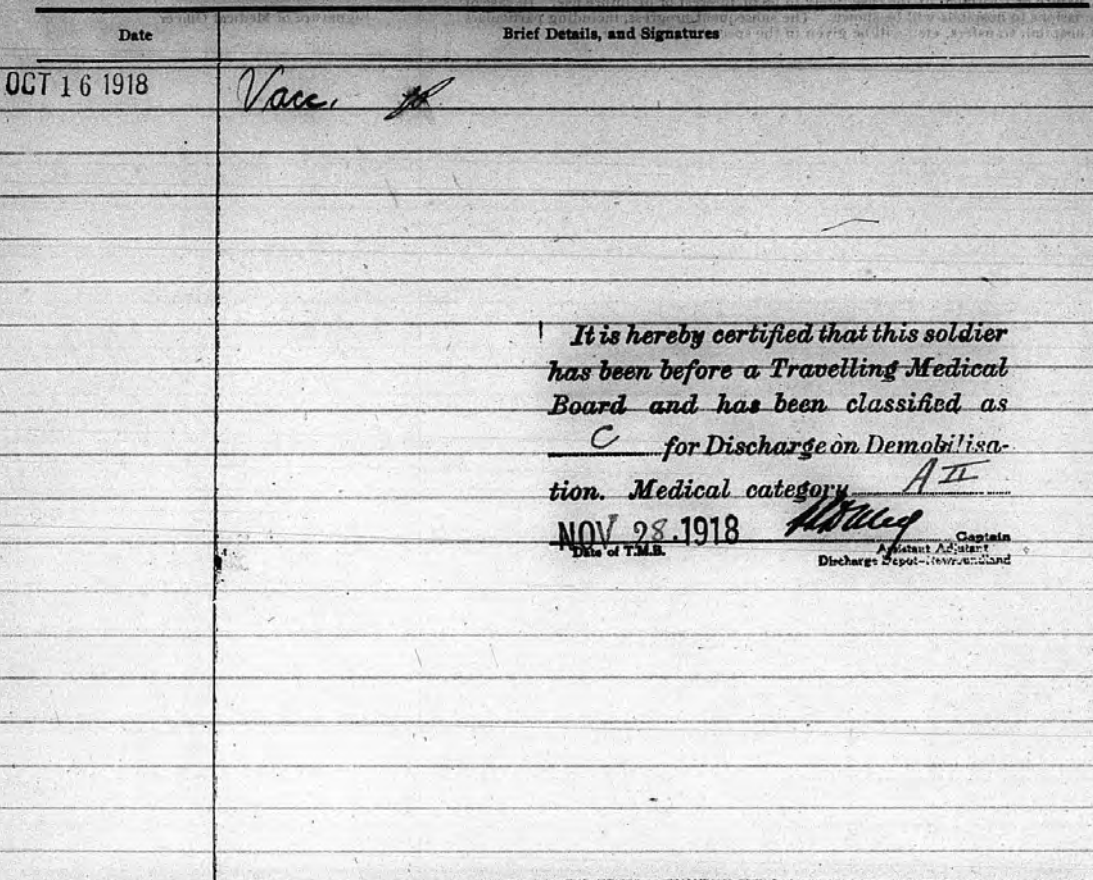 Date Brief Details, and Signatures
OCT 16 1918 Vacc.
It is hereby certified that this soldier
has been before a Travelling Medical
Board and has been classified as
C for Discharge on Demobilisa-
tion. Medical category A II
NOV 28.1918 Captain
Date of T.M.B. Assistant Adjutant
Discharge Depot-Newfoundland